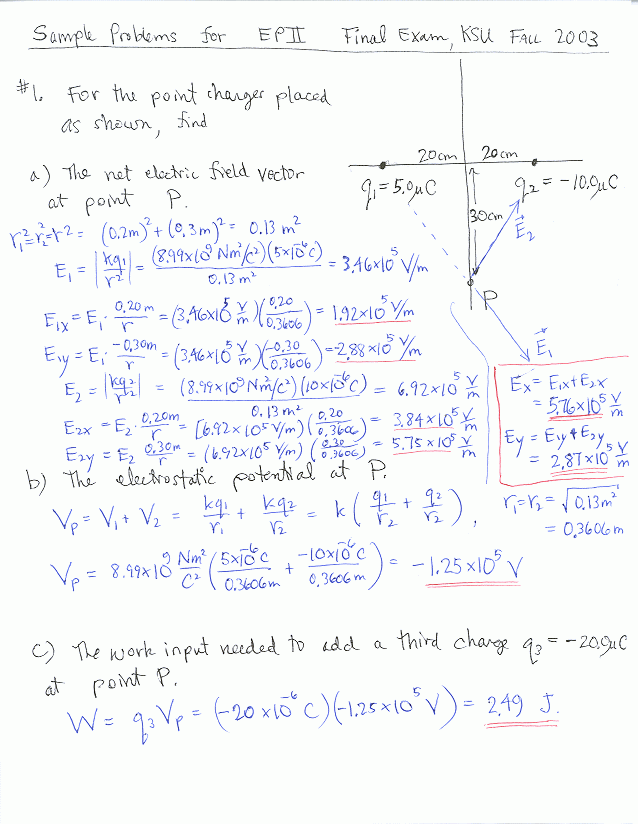 Sample Problems for EPII Final Exam, KSU FALL 2003
#1. For the point charges placed
as shown, find
20cm 20cm
q₁=5.0μC q₂=-10.0μC
30cm
E⃗₂
P
E⃗₁
a) The net electric field vector
at point P.
r₁²=r₂²=r²= (0.2m)²+(0.3m)²= 0.13 m²
E₁ = |kq₁/r²| = (8.99x10⁹ Nm²/c²)(5x10⁻⁶C)/0.13 m² = 3.46x10⁵ V/m
E₁ₓ= E₁· 0.20m/r = (3.46x10⁵ V/m)(0.20/0.3606) = 1.92x10⁵ V/m
E₁y= E₁· -0.30m/r = (3.46x10⁵ V/m)(-0.30/0.3606) = -2.88x10⁵ V/m
E₂ = |kq₂/r²| = (8.99x10⁹ Nm²/c²)(10x10⁻⁶C)/0.13 m² = 6.92x10⁵ V/m
E₂ₓ = E₂· 0.20m/r = (6.92x10⁵V/m)(0.20/0.3606) = 3.84x10⁵ V/m
E₂y = E₂ 0.30m/r = (6.92x10⁵ V/m)(0.30/0.3606) = 5.75x10⁵ V/m
Eₓ= E₁ₓ+E₂ₓ
= 5.76x10⁵ V/m
Ey = E₁y+E₂y
= 2.87x10⁵ V/m
b) The electrostatic potential at P.
r₁=r₂= √0.13m²
= 0.3606m
Vp = V₁+ V₂ = kq₁/r₁ + kq₂/r₂ = k(q₁/r₂ + q₂/r₂),
Vp = 8.99x10⁹ Nm²/C² (5x10⁻⁶C/0.3606m + -10x10⁻⁶C/0.3606m) = -1.25x10⁵ V
c) The work input needed to add a third charge q₃=-20.0μC
at point P.
W= q₃Vp = (-20x10⁻⁶ C)(-1.25x10⁵ V) = 2.49 J.